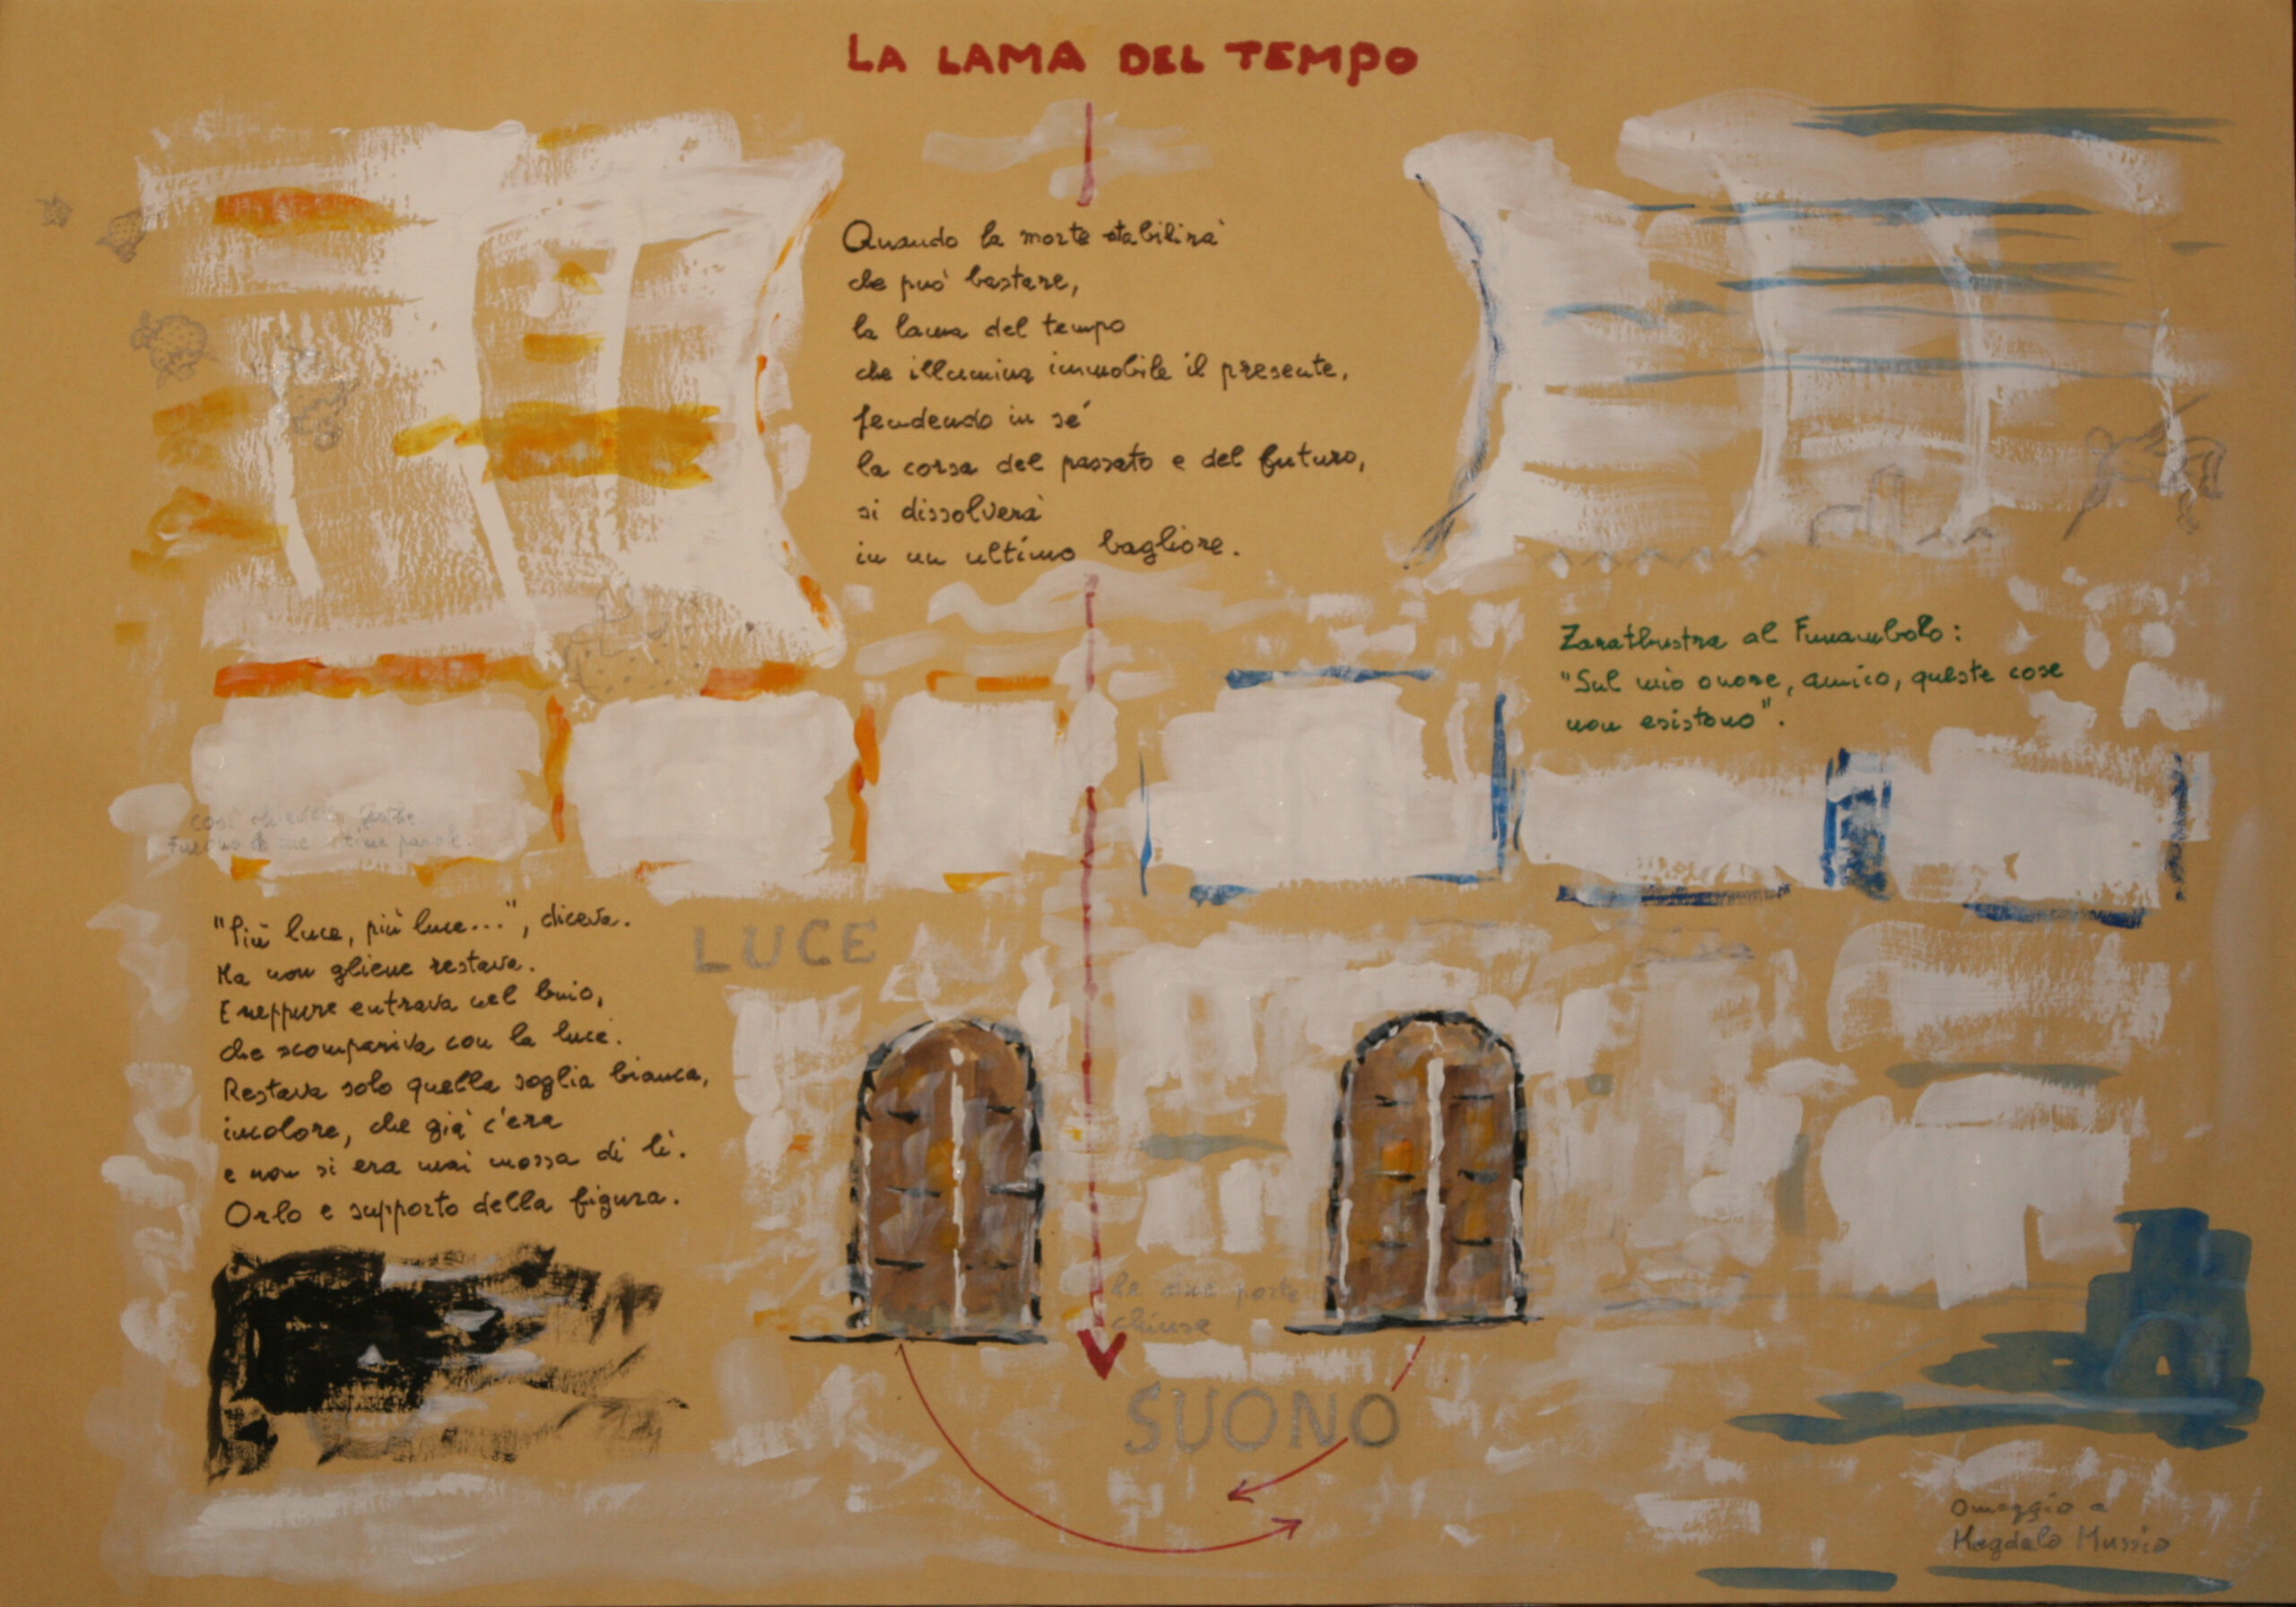 LA LAMA DEL TEMPO
Quando la morte stabilirà
che può bastare,
la lama del tempo
che illumina immobile il presente,
fendendo in sé
la corsa del passato e del futuro,
si dissolverà
in un ultimo bagliore.
Zarathustra al Funambolo:
"Sul mio onore, amico, queste cose
non esistono".
così chiedeva Goethe.
Furono le sue ultime parole.
"Più luce, più luce...", diceva.
Ma non gliene restava.
E neppure entrava nel buio,
che scompariva con la luce.
Restava solo quella soglia bianca,
incolore, che già c'era
e non si era mai mossa di lì.
Orlo e supporto della figura.
LUCE
le due porte
chiuse
SUONO
Omaggio a
Magdalo Mussio